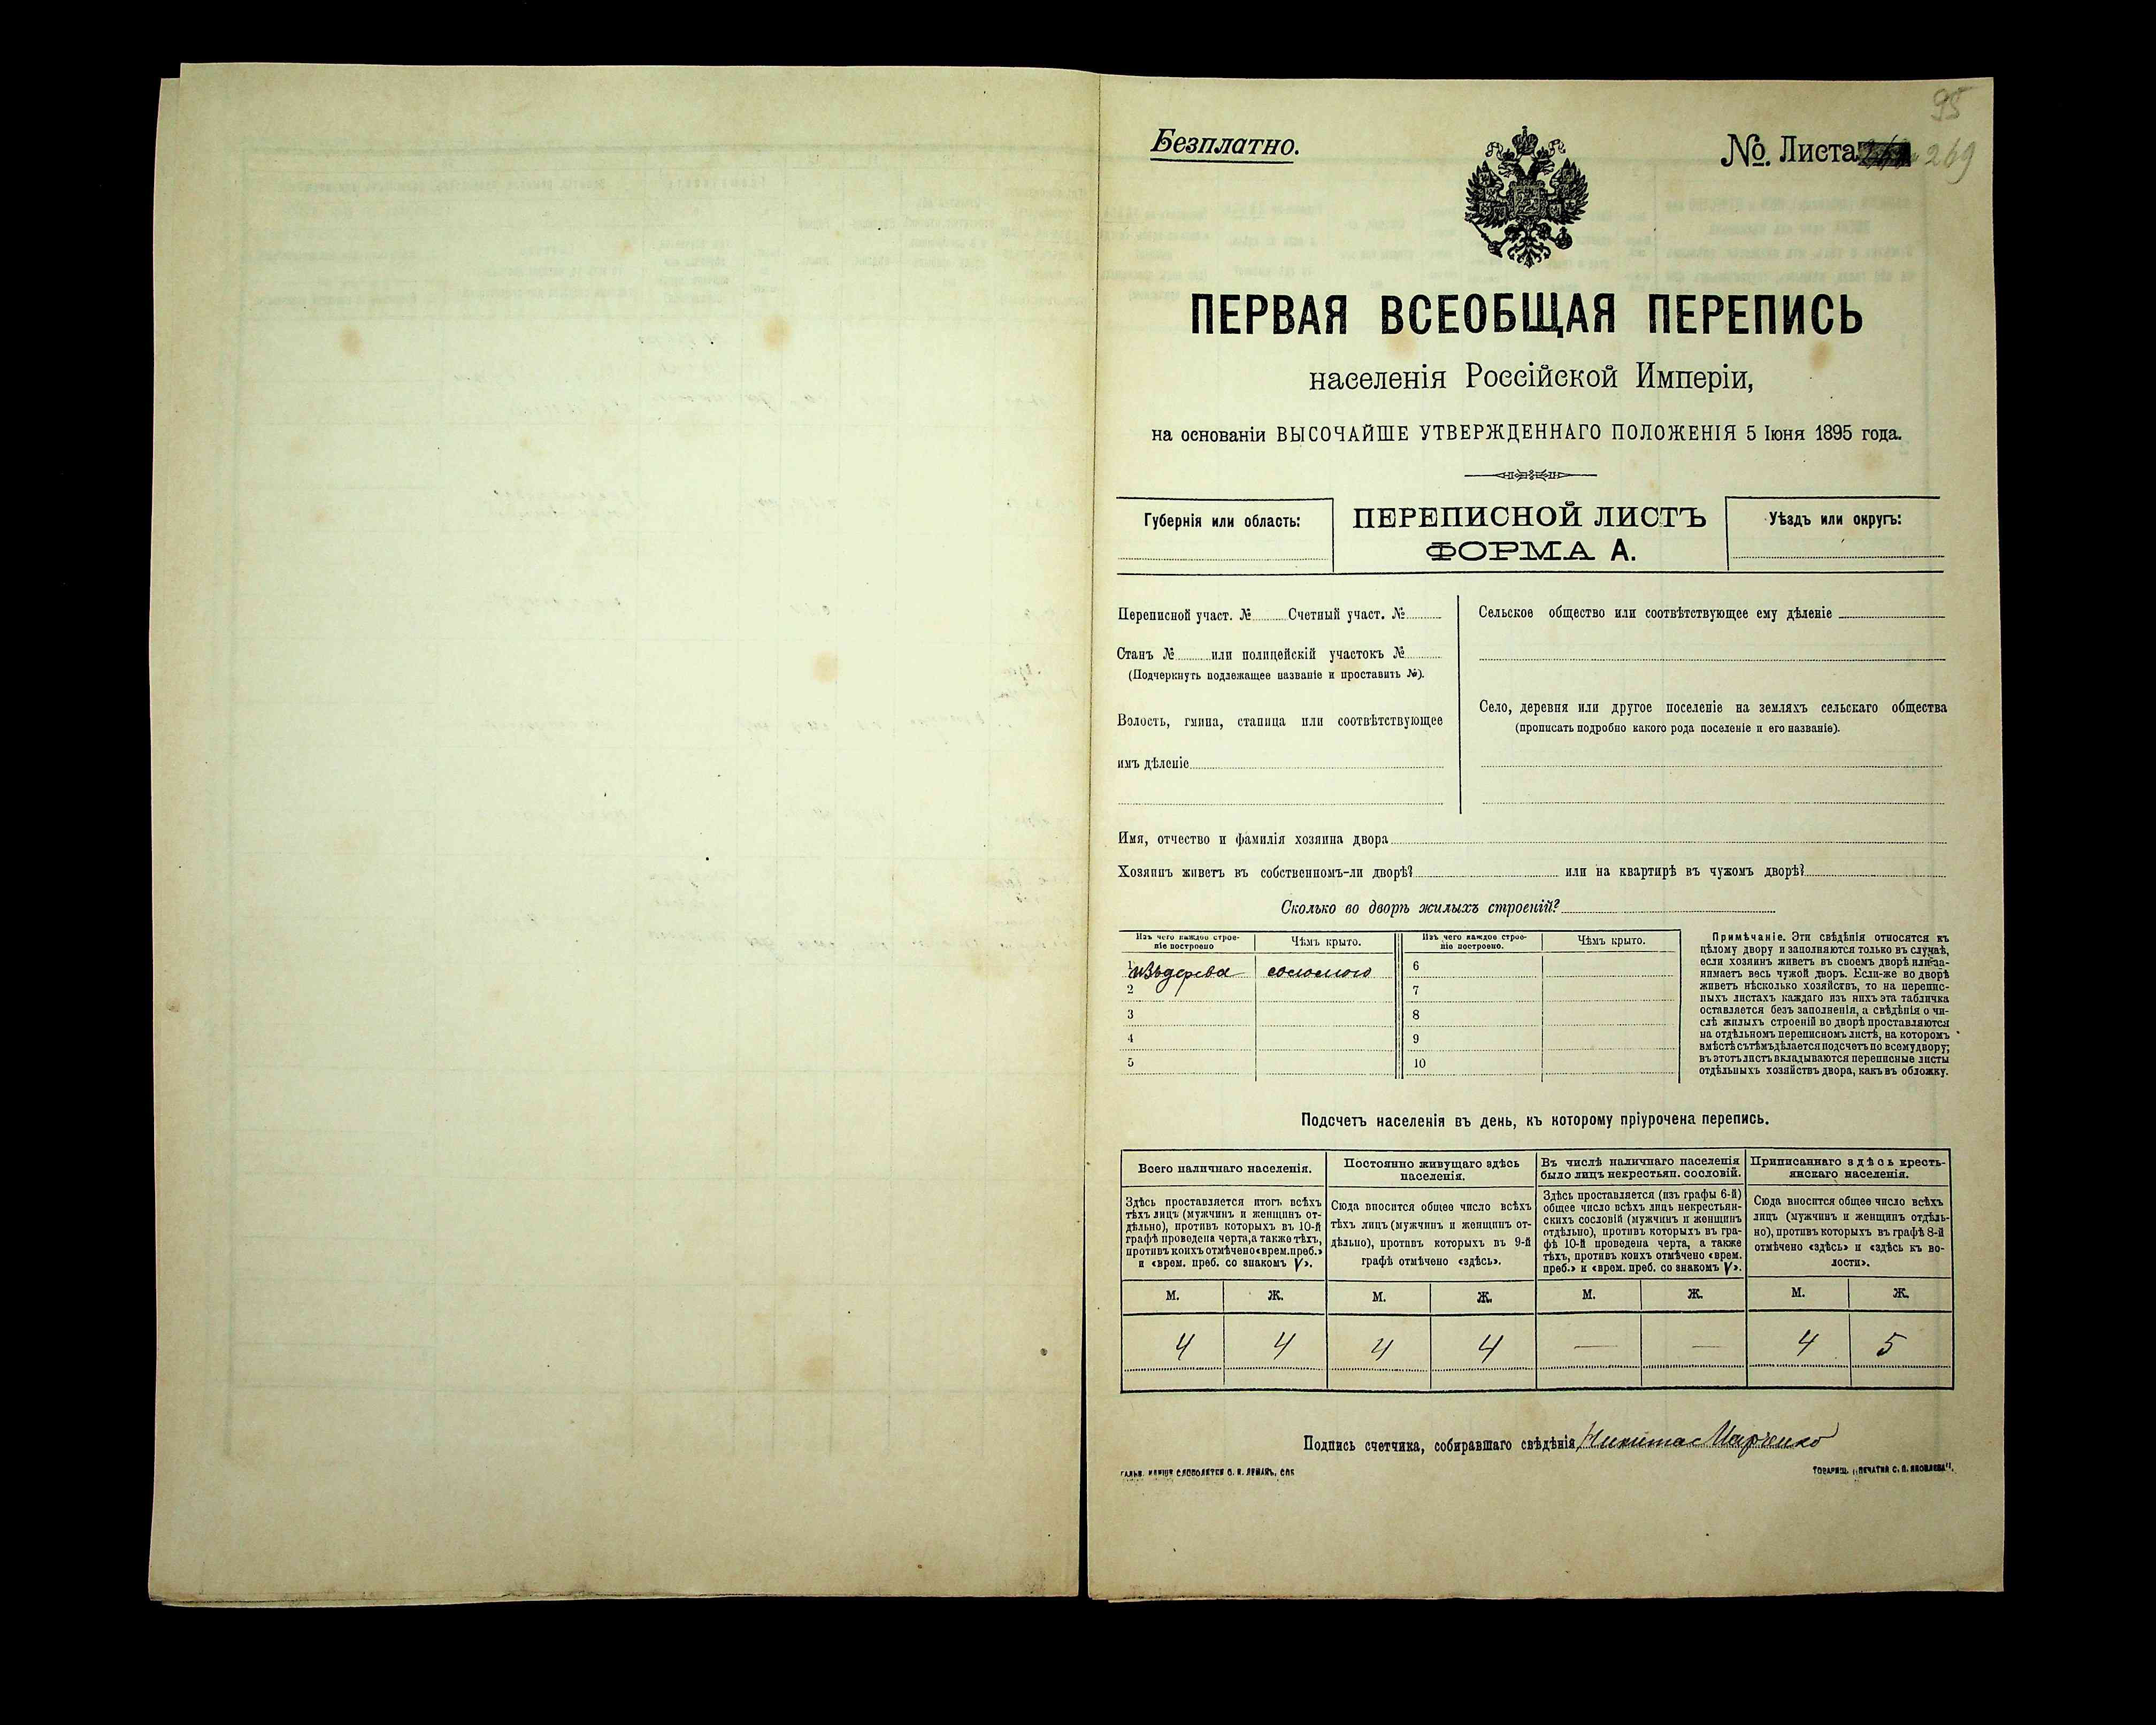 95
Безплатно.
№. Листа 269
ПЕРВАЯ ВСЕОБЩАЯ ПЕРЕПИСЬ
населенія Россійской Имперіи,
на основаніи ВЫСОЧАЙШЕ УТВЕРЖДЕННАГО ПОЛОЖЕНІЯ 5 Іюня 1895 года.
Губернія или область:
ПЕРЕПИСНОЙ ЛИСТЪ
ФОРМА А.
Уѣздъ или округъ:
Переписной участ. № Счетный участ. №
Станъ № или полицейскій участокъ №
(Подчеркнуть подлежащее названіе и проставить №).
Волость, гмина, станица или соотвѣтствующее
имъ дѣленіе
Сельское общество или соотвѣтствующее ему дѣленіе
Село, деревня или другое поселеніе на земляхъ сельскаго общества
(прописать подробно какого рода поселеніе и его названіе).
Имя, отчество и фамилія хозяина двора
Хозяинъ живетъ въ собственномъ-ли дворѣ? или на квартирѣ въ чужомъ дворѣ?
Сколько во дворѣ жилыхъ строеній?
Изъ чего каждое строе-
ніе построено
Чѣмъ крыто.
Изъ чего каждое строе-
ніе построено.
Чѣмъ крыто.
1 изъ дерева соломою 6
2 7
3 8
4 9
5 10
Примѣчаніе. Эти свѣдѣнія относятся къ
цѣлому двору и заполняются только въ случаѣ,
если хозяинъ живетъ въ своемъ дворѣ или за-
нимаетъ весь чужой дворъ. Если-же во дворѣ
живетъ нѣсколько хозяйствъ, то на перепис-
ныхъ листахъ каждаго изъ нихъ эта табличка
оставляется безъ заполненія, а свѣдѣнія о чи-
слѣ жилыхъ строеній во дворѣ проставляются
на отдѣльномъ переписномъ листѣ, на которомъ
вмѣстѣ съ тѣмъ дѣлается подсчетъ по всему двору;
въ этотъ листъ вкладываются переписные листы
отдѣльныхъ хозяйствъ двора, какъ въ обложку.
Подсчетъ населенія въ день, къ которому пріурочена перепись.
Всего наличнаго населенія.
Здѣсь проставляется итогъ всѣхъ
тѣхъ лицъ (мужчинъ и женщинъ от-
дѣльно), противъ которыхъ въ 10-й
графѣ проведена черта, а также тѣхъ,
противъ коихъ отмѣчено «врем. преб.»
и «врем. преб. со знакомъ V».
Постоянно живущаго здѣсь
населенія.
Сюда вносится общее число всѣхъ
тѣхъ лицъ (мужчинъ и женщинъ от-
дѣльно), противъ которыхъ въ 9-й
графѣ отмѣчено «здѣсь».
Въ числѣ наличнаго населенія
было лицъ некрестьян. сословій.
Здѣсь проставляется (изъ графы 6-й)
общее число всѣхъ лицъ некрестьян-
скихъ сословій (мужчинъ и женщинъ
отдѣльно), противъ которыхъ въ гра-
фѣ 10-й проведена черта, а также
тѣхъ, противъ коихъ отмѣчено «врем.
преб.» и «врем. преб. со знакомъ V».
Приписаннаго здѣсь кресть-
янскаго населенія.
Сюда вносится общее число всѣхъ
лицъ (мужчинъ и женщинъ отдѣль-
но), противъ которыхъ въ графѣ 8-й
отмѣчено «здѣсь» и «здѣсь къ во-
лости».
М. Ж. М. Ж. М. Ж. М. Ж.
4 4 4 4 — — 4 5
Подпись счетчика, собиравшаго свѣдѣнія Никита Марченко
ТОВАРИЩ. „ПЕЧАТНЯ С. П. ЯКОВЛЕВА".